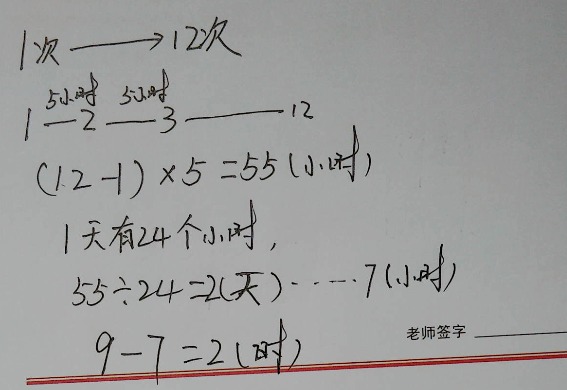 1次 ——→ 12次
5小时 5小时
1 — 2 — 3 —— 12
(12-1)×5=55(小时)
1天有24个小时,
55÷24=2(天)……7(小时)
老师签字
9-7=2(时)